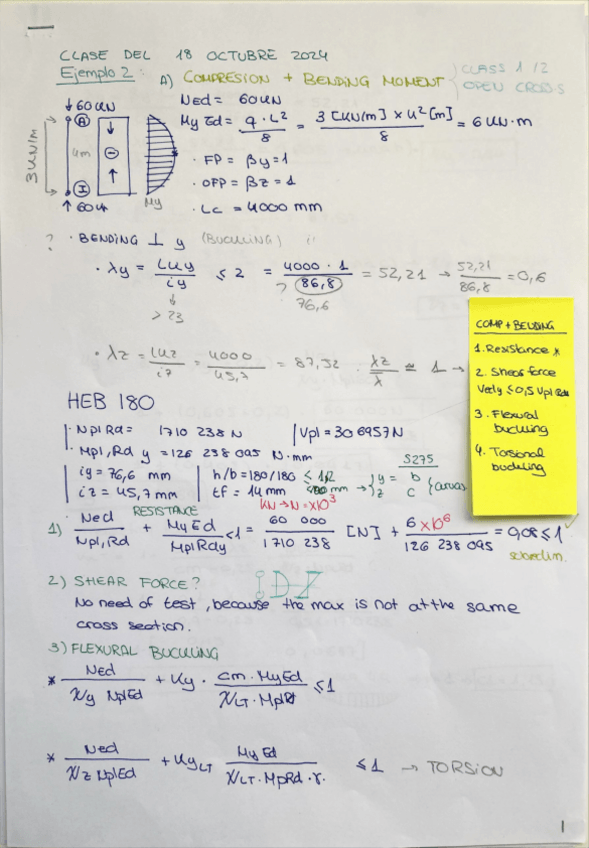 CLASE DEL 18 OCTUBRE 2024
Ejemplo 2: A) COMPRESION + BENDING MOMENT
CLASS 1/2
OPEN CROSS
↓ 60 kN
3 kN/m
4m
↑ 60
My
Ned = 60 kN
My Ed = q · L² / 8 = 3 [kN/m] x 4² [m] / 8 = 6 kN·m
· FP = βy = 1
· OFP = βz = 1
· Lc = 4000 mm
? · BENDING ⊥ y (BUCKLING)
· λy = Lky / iy ≤ 2 = 4000 · 1 / 86,8 = 52,21 → 52,21 / 86,8 = 0,6
> 23
? 76,6
· λz = Lkz / iz = 4000 / 45,7 = 87,52 · λz / λ ≅ 1 →
COMP + BENDING
1. Resistance *
2. Shear force
Vedy ≤ 0,5 Vpl Rdz
3. Flexural
buckling
4. Torsional
buckling
HEB 180
· Npl Rd = 1710 238 N
Vpl = 306957 N
· Mpl, Rd y = 126 238 095 N·mm
S275
iy = 76,6 mm
iz = 45,7 mm
h/b = 180/180 ≤ 1,2
tf = 14 mm
y = b
z c
curvas
kN → N = x10³
RESISTANCE
1) Ned / Npl, Rd + My Ed / Mpl Rdy < 1 = 60 000 / 1710 238 [N] + 6 x10⁶ / 126 238 095 = 0,08 ≤ 1 ✓
2) SHEAR FORCE?
No need of test, because the max is not at the same
cross section.
3) FLEXURAL BUCKLING
* Ned / χy NplEd + Ky · cm · MyEd / χLT · MplRd ≤ 1
* Ned / χz NplEd + KyLT My Ed / χLT · MplRd · r. ≤ 1 → TORSION
1